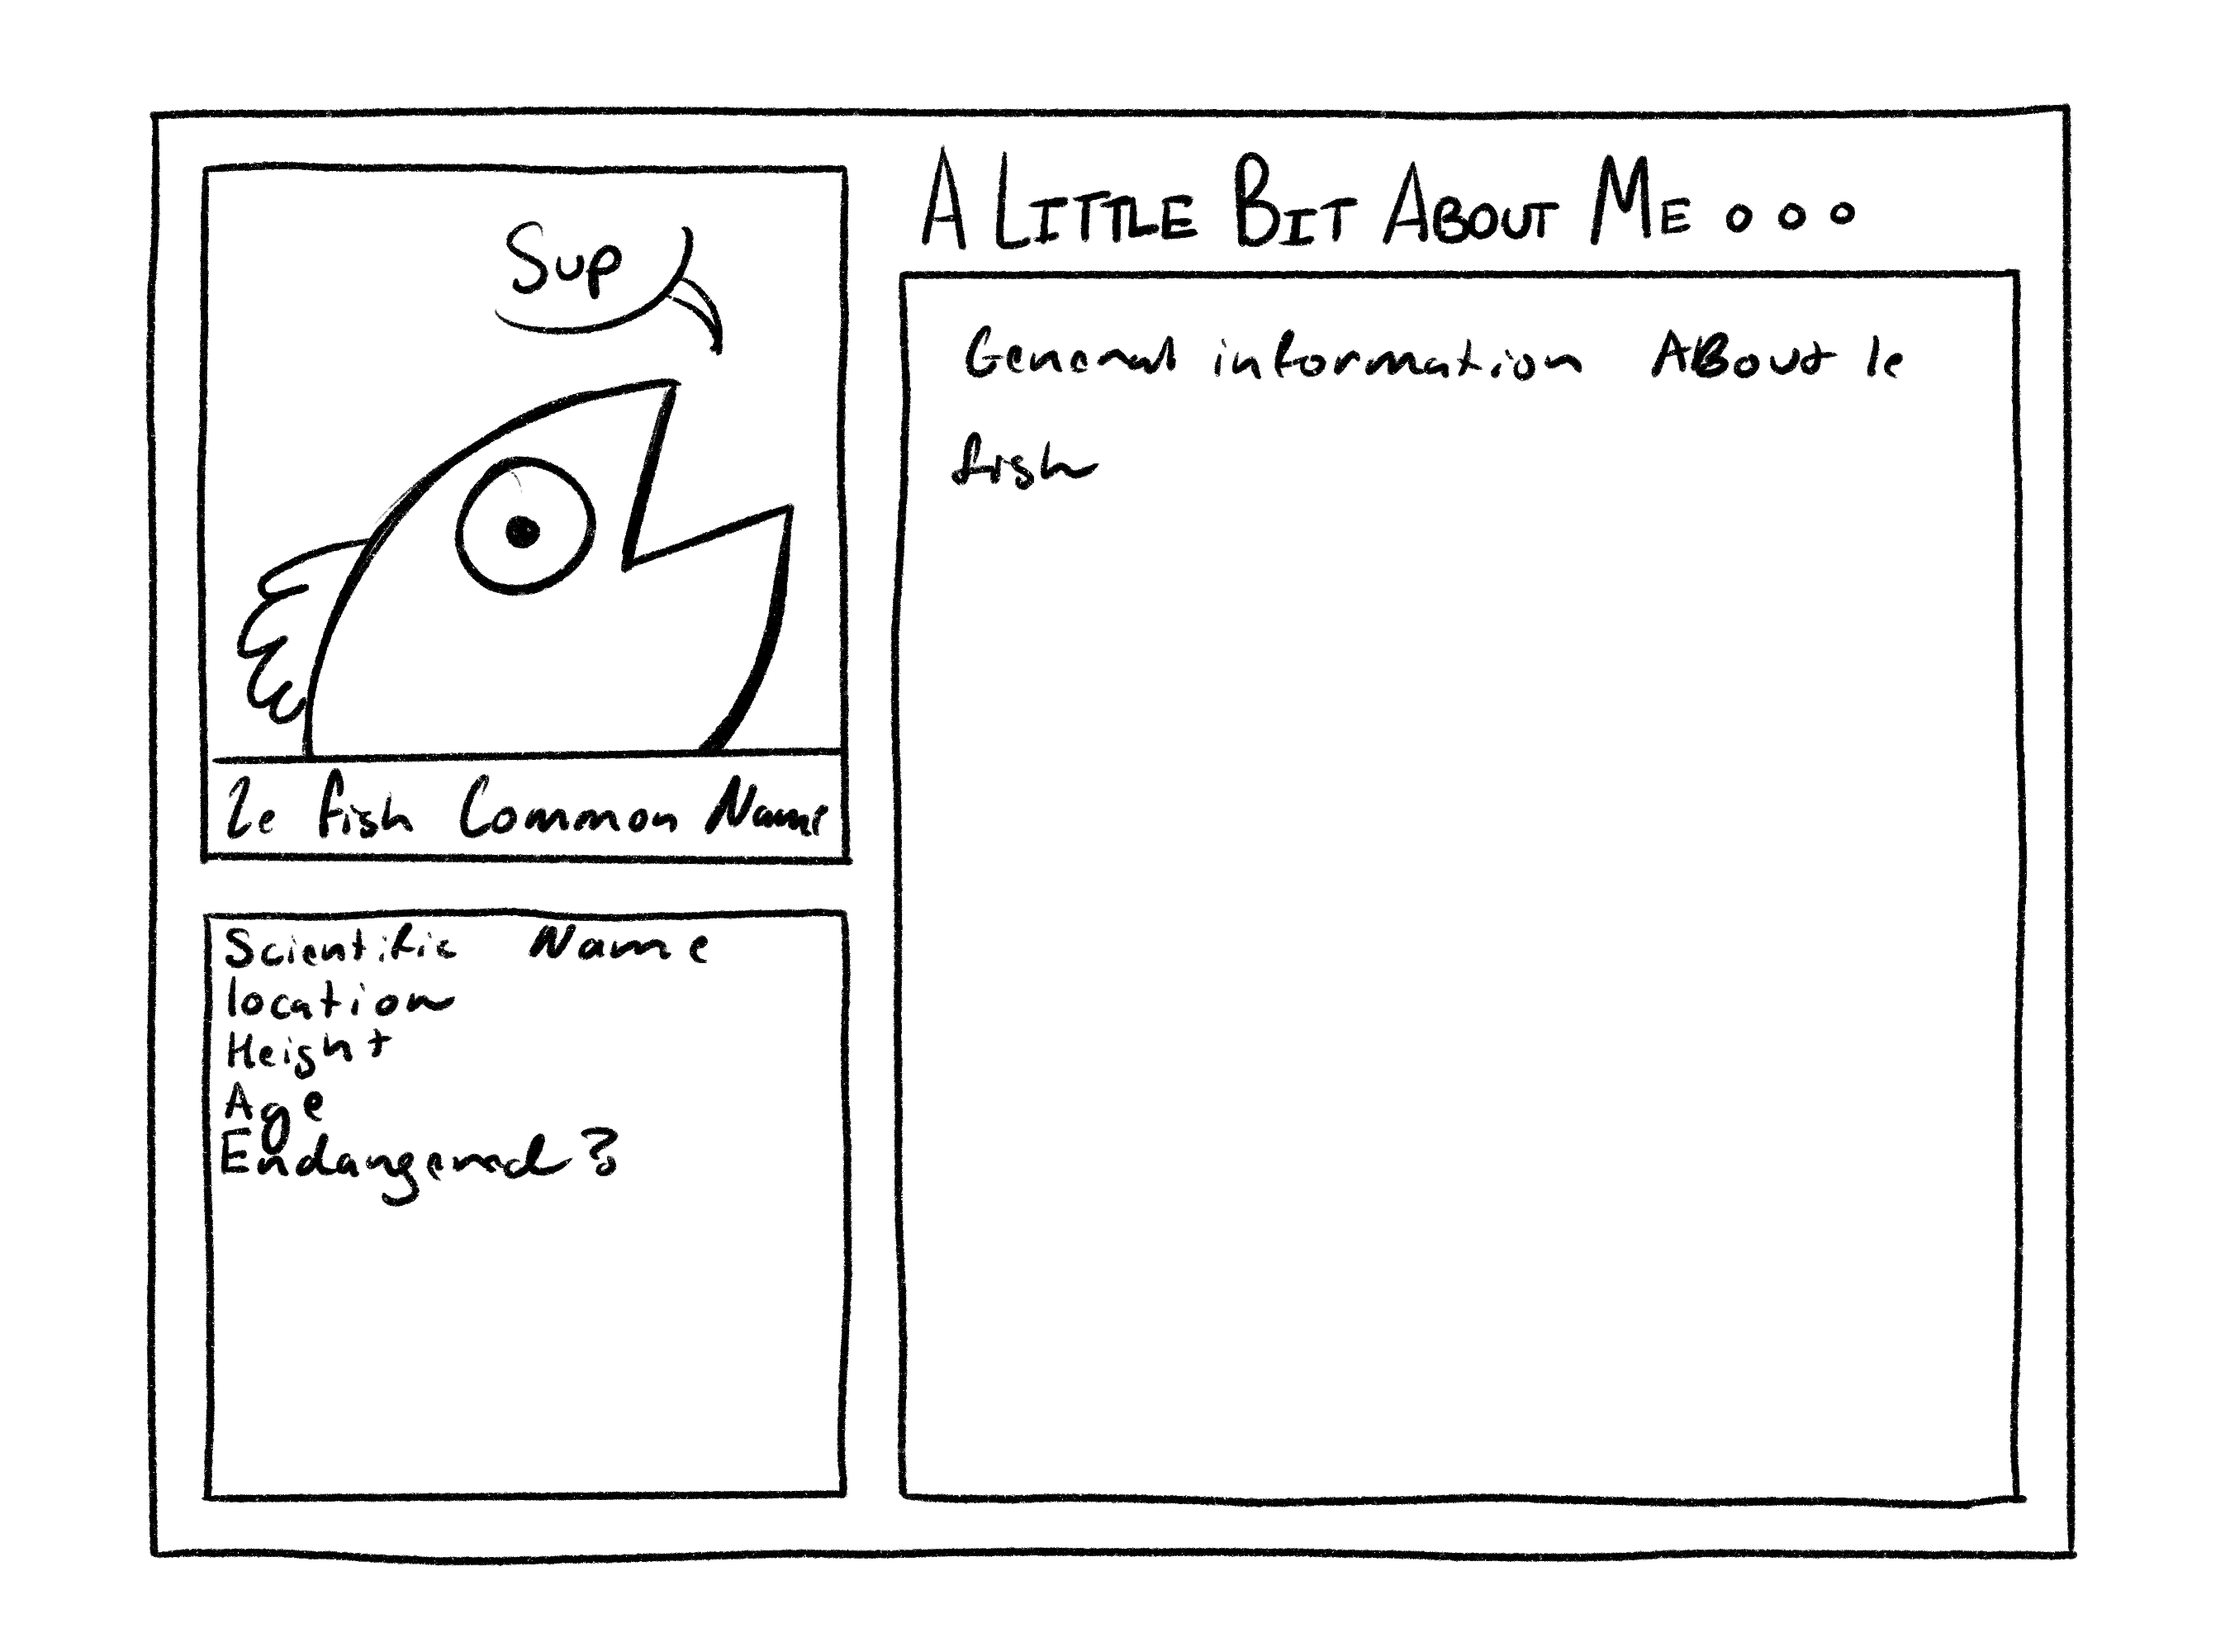 Sup
Le fish Common Name
Scientific Name
location
Height
Age
Endangered?
A LITTLE BIT ABOUT ME...
General information ABout le
fish